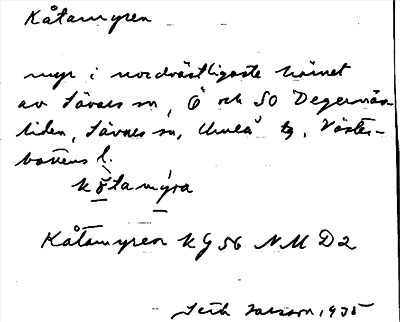 Kåtamyren
myr i nordvästligaste hörnet
av Sävars sn, Ö och SO Degernäs-
liden, Sävars sn, Umeå tg, Väster-
bottens l.
kåtamyra
Kåtamyren kg 56 NM D2
1935